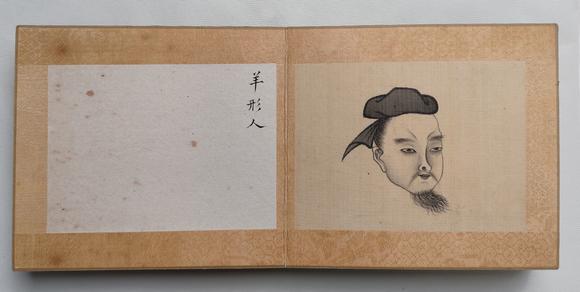 羊形人